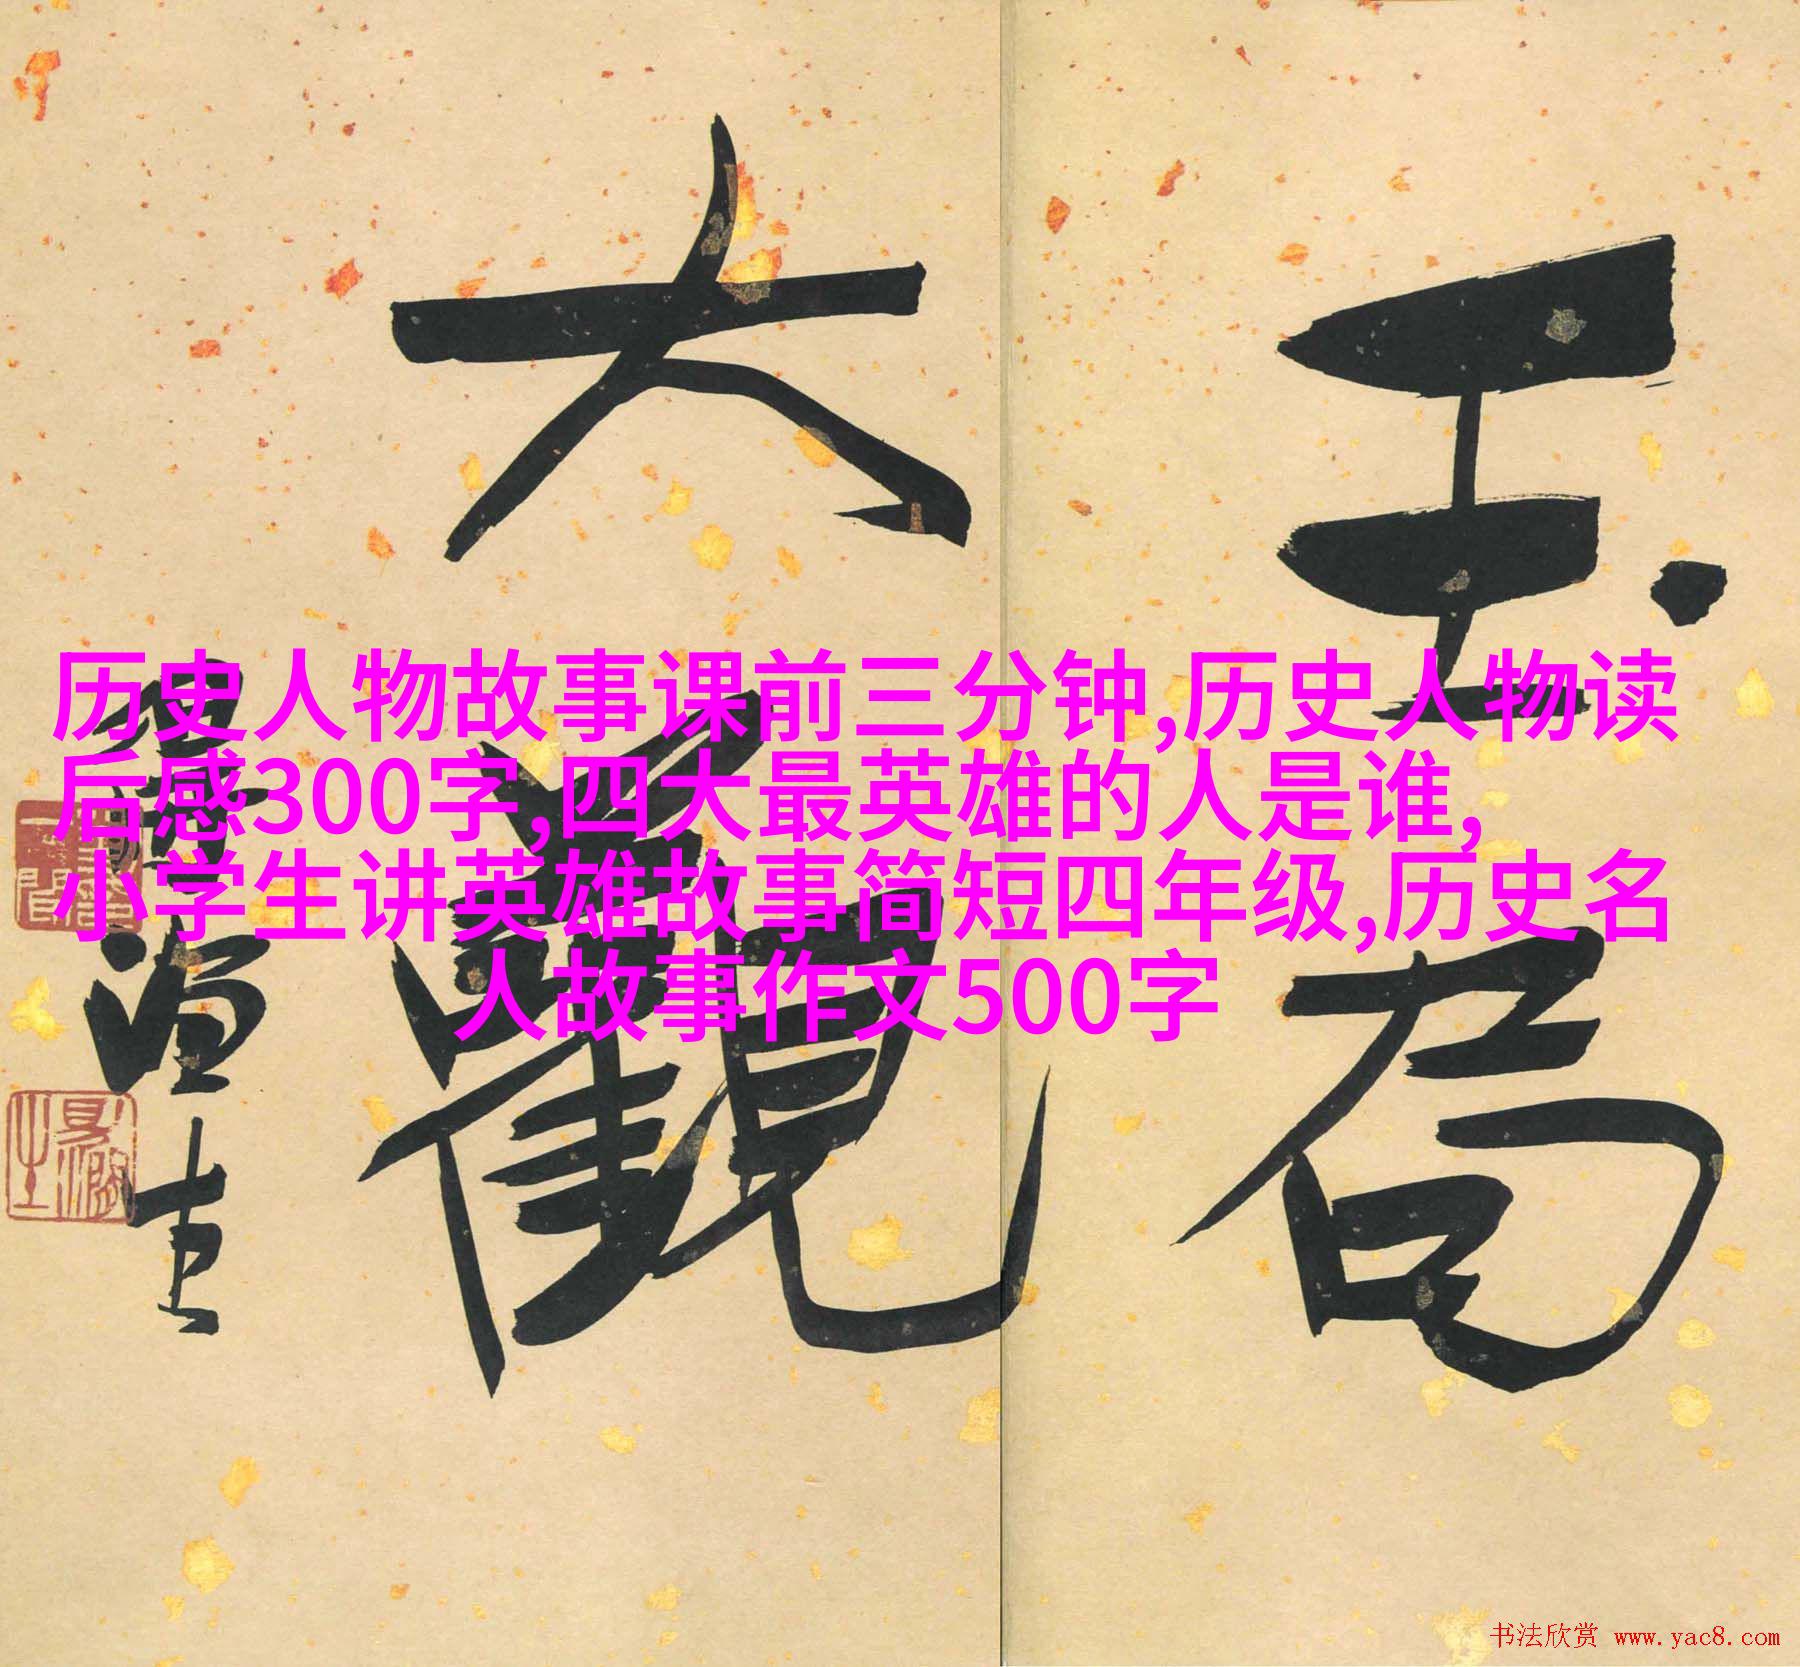 历史人物故事课前三分钟,历史人物读
后感300字,四大最英雄的人是谁,
小学生讲英雄故事简短四年级,历史名
人故事作文500字
玉局
大觀
覃溪書
书法欣赏 www.yac8.com